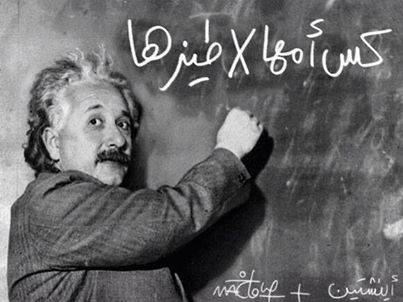 كس أمها X طيزها
أينشتين +